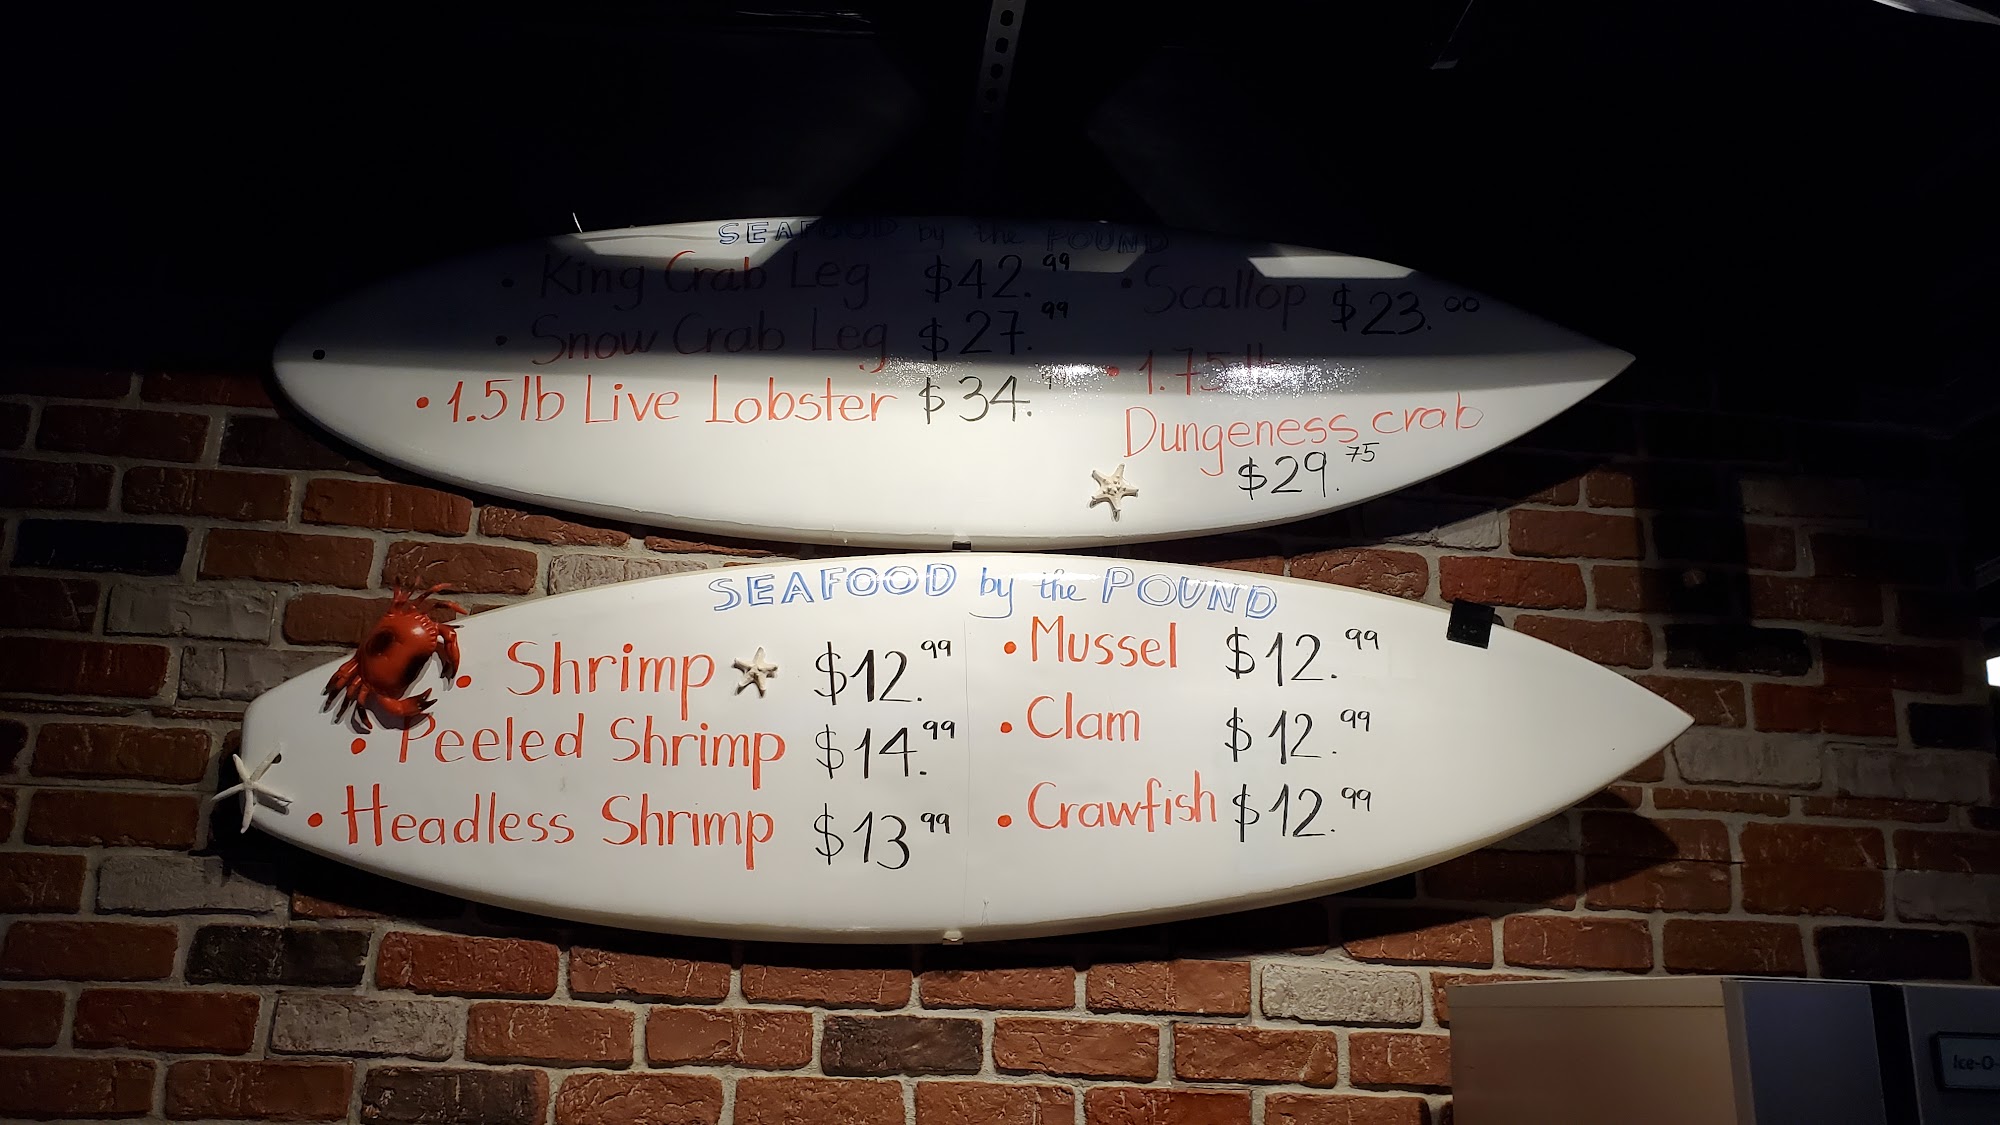 SEAFOOD by the POUND
• King Crab Leg $42.99
• Snow Crab Leg $27.99
• 1.5 lb Live Lobster $34.
• Scallop $23.00
• 1.75 lb
Dungeness crab
$29.75
SEAFOOD by the POUND
• Shrimp $12.99
• Peeled Shrimp $14.99
• Headless Shrimp $13.99
• Mussel $12.99
• Clam $12.99
• Crawfish $12.99
Ice-O-